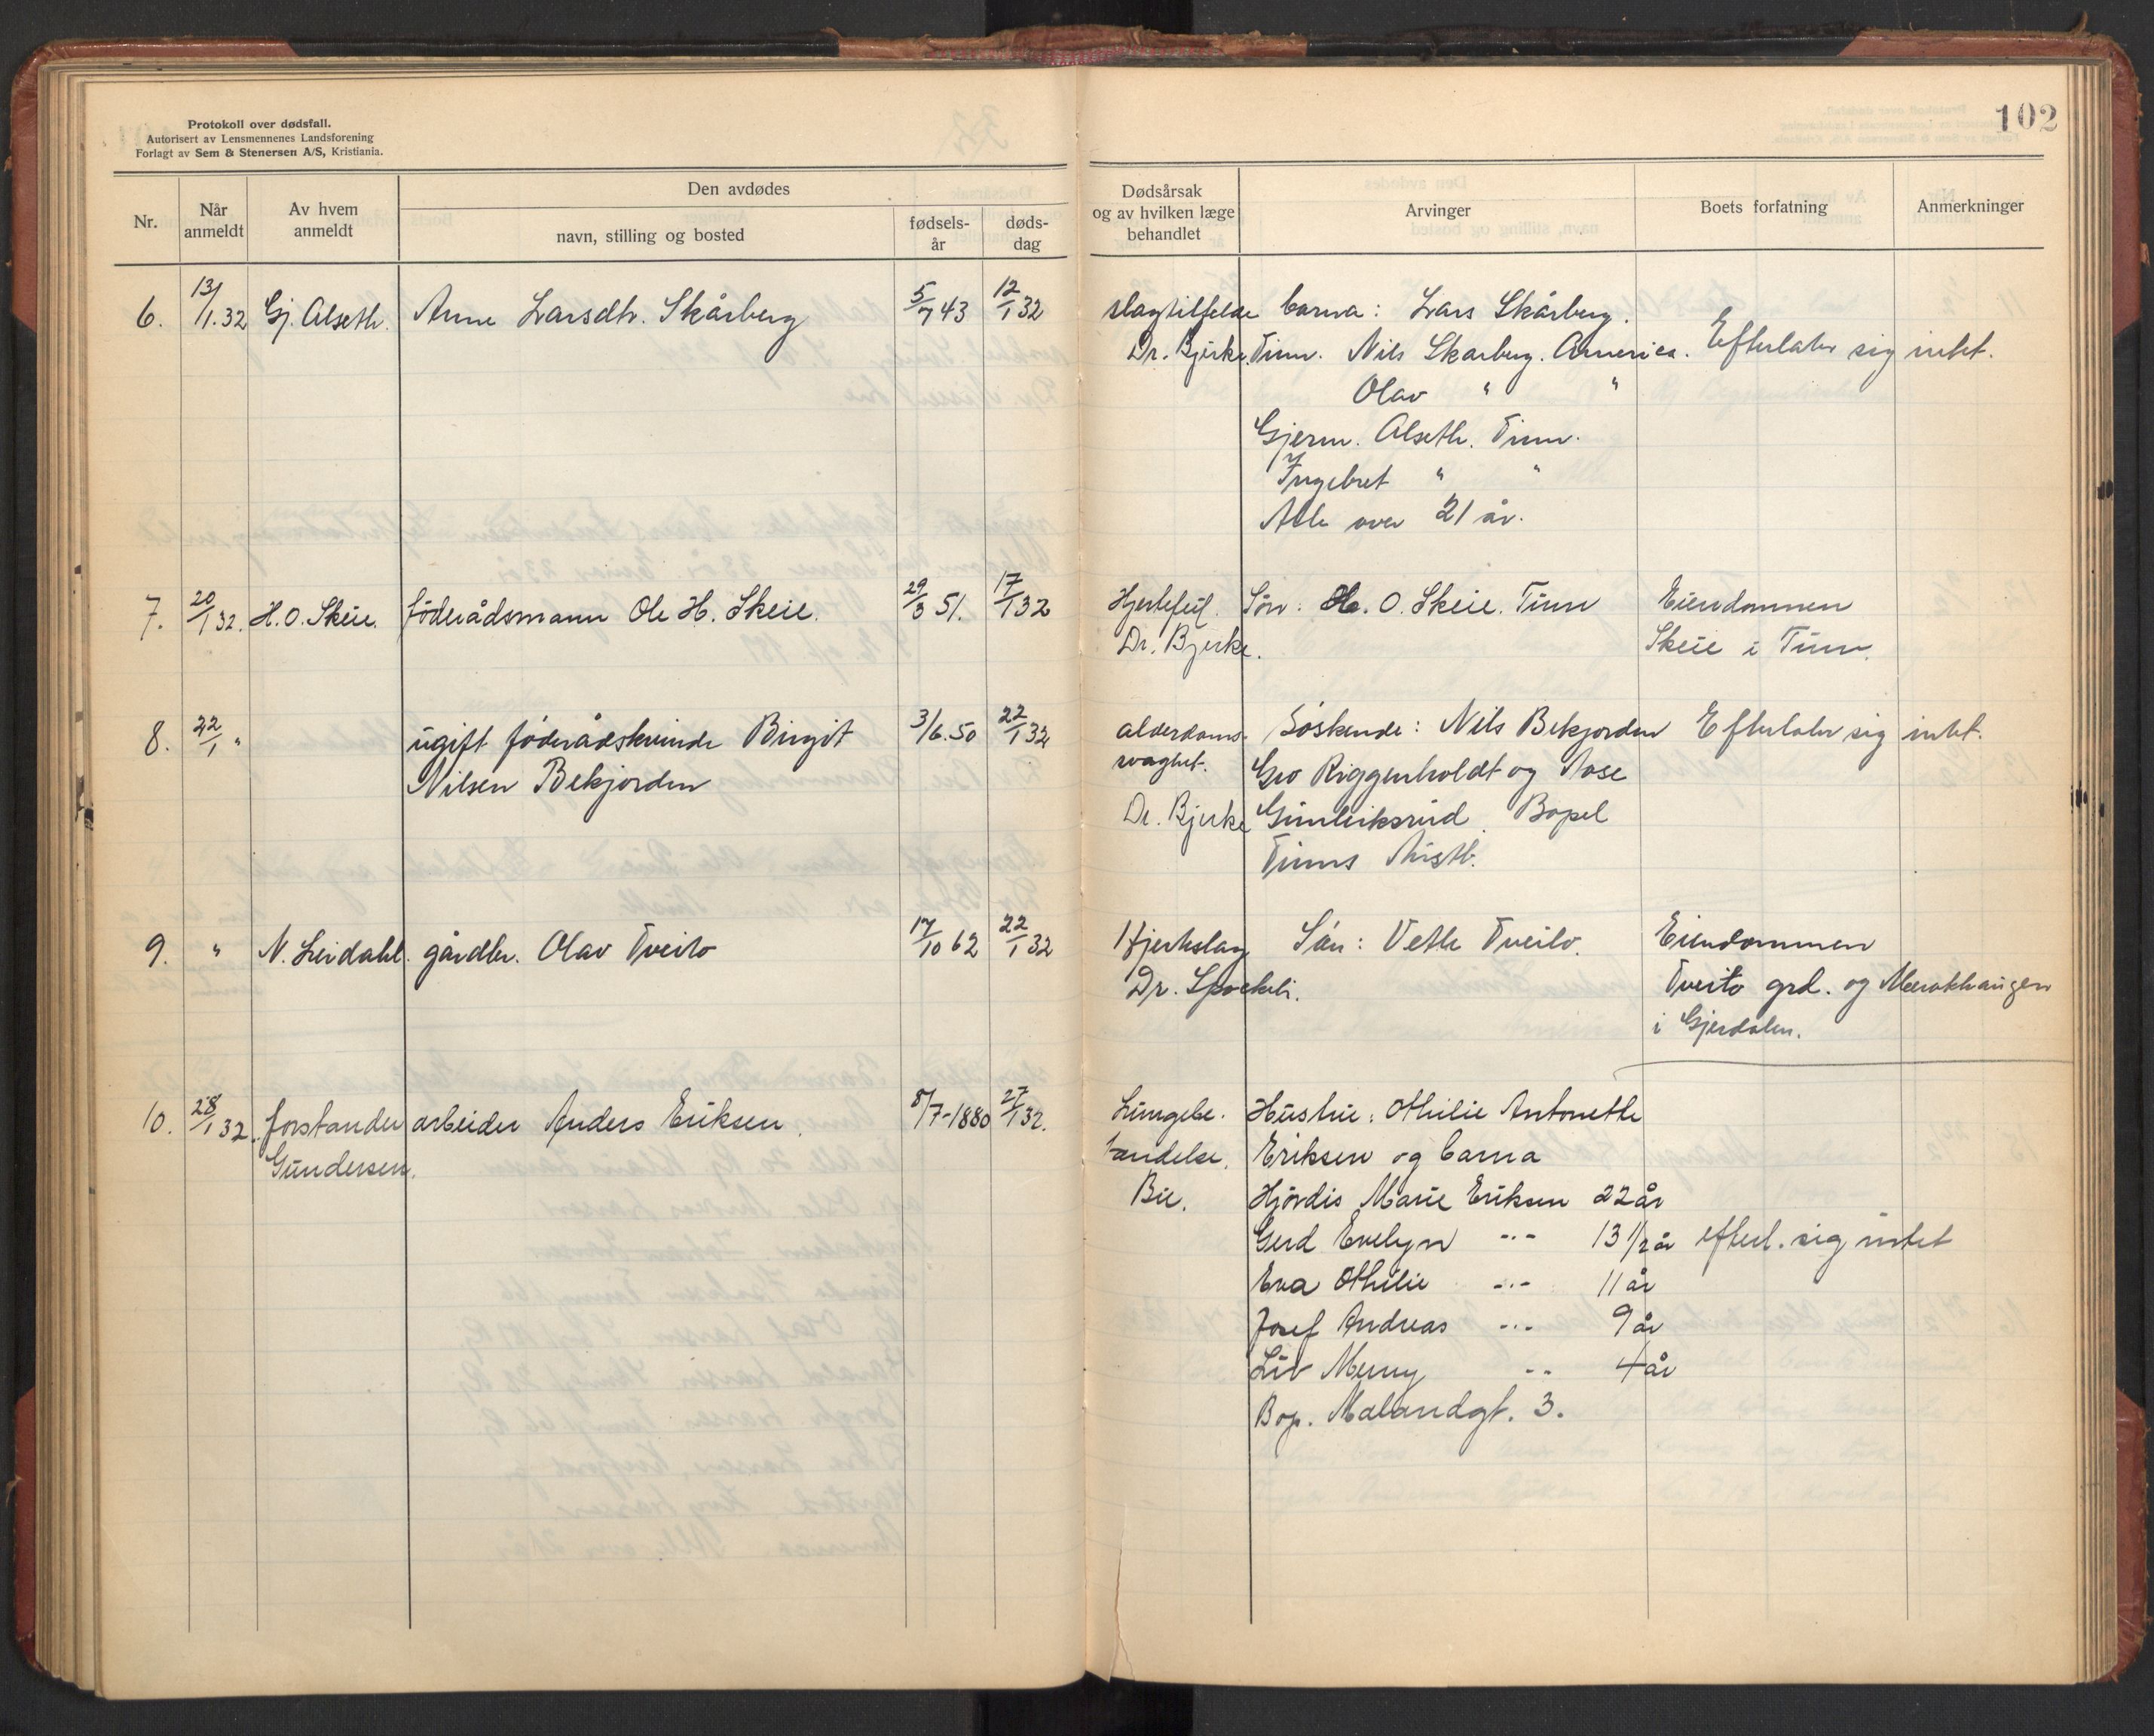 Protokoll over dødsfall.
Autorisert av Lensmennenes Landsforening
Forlagt av Sem & Stenersen A/S, Kristiania.
102
Nr.
Når anmeldt
Av hvem anmeldt
Den avdødes
navn, stilling og bosted
fødsels-år
døds-dag
Dødsårsak og av hvilken læge behandlet
Arvinger
Boets forfatning
Anmerkninger
6. 13/1.32 Gj. Alseth. Anne Larsdtr. Skårberg 5/7 43 12/1 32
slagtilfelde
Dr. Bjerke.
barna: Lars Skårberg.
Tinn. Nils Skarberg. America.
Olav " "
Gjerm. Alseth. Tinn.
Ingebret " "
Alle over 21 år.
Efterlater sig intet.
7. 20/1 32. H. O. Skeie. føderådsmann Ole H. Skeie. 29/3 51. 17/1 32
Hjertefeil.
Dr. Bjerke.
Søn: H. O. Skeie. Tinn
Eiendommen
Skeie i Tinn.
8. 22/1 " ugift føderådskvinde Birgit 3/6.50 22/1 32
Nilsen Bekjorden
alderdoms-
svaghet.
Dr. Bjerke
Søskende: Nils Bekjorden
Gro Riggenholdt og Aase
Gunleiksrud. Bopel
Tinns Austb.
Efterlater sig intet.
9. " N. Leirdahl. gårdbr. Olav Tveito 17/10 62 22/1 32
Hjerteslag
Dr. Spockeli.
Søn: Vetle Tveito.
Eiendommen
Tveito grd. og
i Gjerdalen.
10. 28/1 32. forstander arbeider Anders Eriksen. 8/7-1880 27/1 32.
Gundersen.
Lungebe.
tændelse.
Bie.
Hustru: Othilie Antonette
Eriksen og barna
Hjørdis Marie Eriksen 22 år
Gerd Evelyn -"- 13 1/2 år
Eva Othilie -"- 11 år
Josef Andreas -"- 9 år
Liv Merry -"- 4 år
Bop. Malandgt. 3.
efterl. sig intet